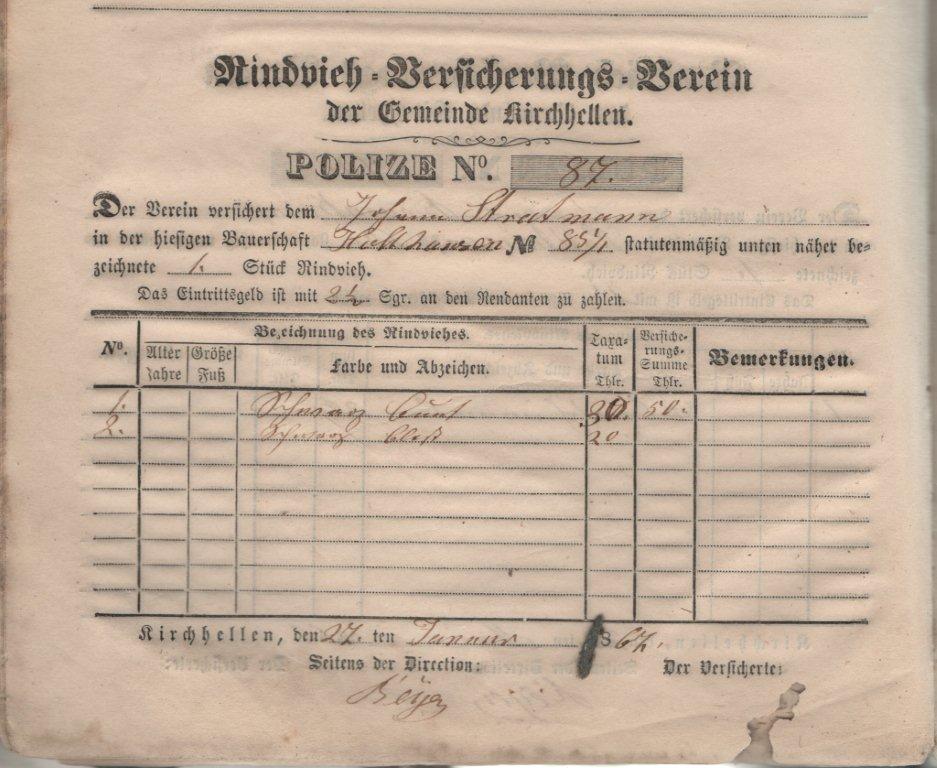 Rindvieh-Versicherungs-Verein
der Gemeinde Kirchhellen.
POLIZE No. 87.
Der Verein versichert dem Johann Stratmann
in der hiesigen Bauerschaft № 85 statutenmäßig unten näher be-
zeichnete 1. Stück Rindvieh.
Das Eintrittsgeld ist mit 2½ Sgr. an den Rendanten zu zahlen.
No. Bezeichnung des Rindviehes. Taxa-tum Thlr. Versiche-rungs-Summe Thlr. Bemerkungen.
Alter Jahre Größe Fuß Farbe und Abzeichen.
1. Schwarz bunt 30. 50.
2. Schwarz bleß 20
Kirchhellen, den 27. ten Januar 1867.
Seitens der Direction: Der Versicherte: